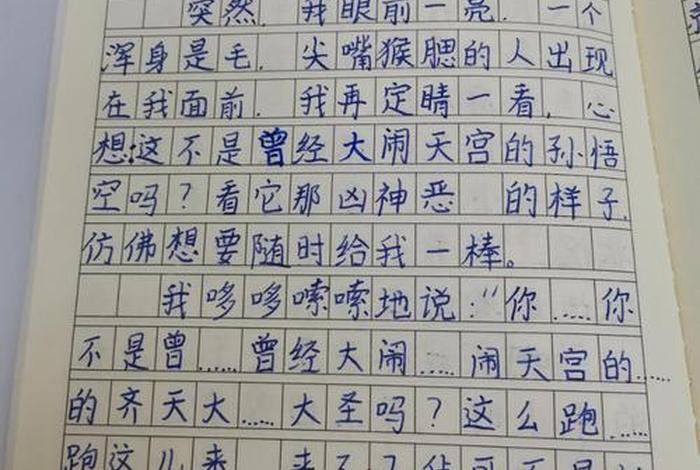 突然,我眼前一亮.一个
浑身是毛.尖嘴猴腮的人出现
在我面前.我再定晴一看,心
想:这不是曾经大闹天宫的孙悟
空吗?看它那凶神恶 的样子,
仿佛想要随时给我一棒。
我哆哆嗦嗦地说:"你……你
不是曾……曾经大闹……闹天宫的……
的齐天大……大圣吗?这么跑……
跑这儿来